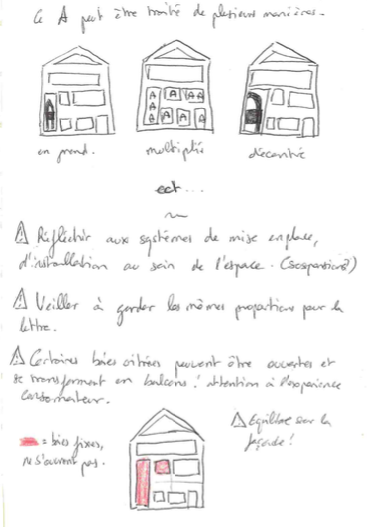 Ce A peut être traité de plusieurs manières.
A A A A A A A A
en grand. multiplié décentré
ect...
⚠ Réfléchir aux systèmes de mise en place,
d'installation au sein de l'espace. (suspensions?)
⚠ Veiller à garder les mêmes proportions pour la
lettre.
⚠ Certaines baies vitrées peuvent être ouvertes et
se transforment en balcons! attention à l'expérience
consommateur.
= baies fixes,
ne s'ouvrent pas.
⚠ Equilibre sur la
façade!